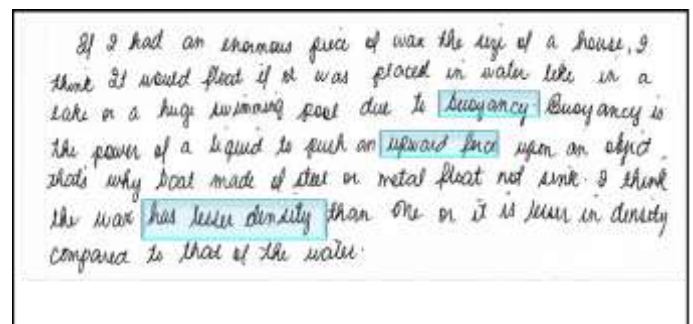 If I had an enormous piece of wax the size of a house, I
think It would float if it was placed in water like in a
lake or a huge swimming pool due to buoyancy. Buoyancy is
the power of a liquid to push an upward force upon an object.
thats why boat made of steel or metal float not sink. I think
the wax has lesser density than one or it is lesser in density
compared to that of the water.